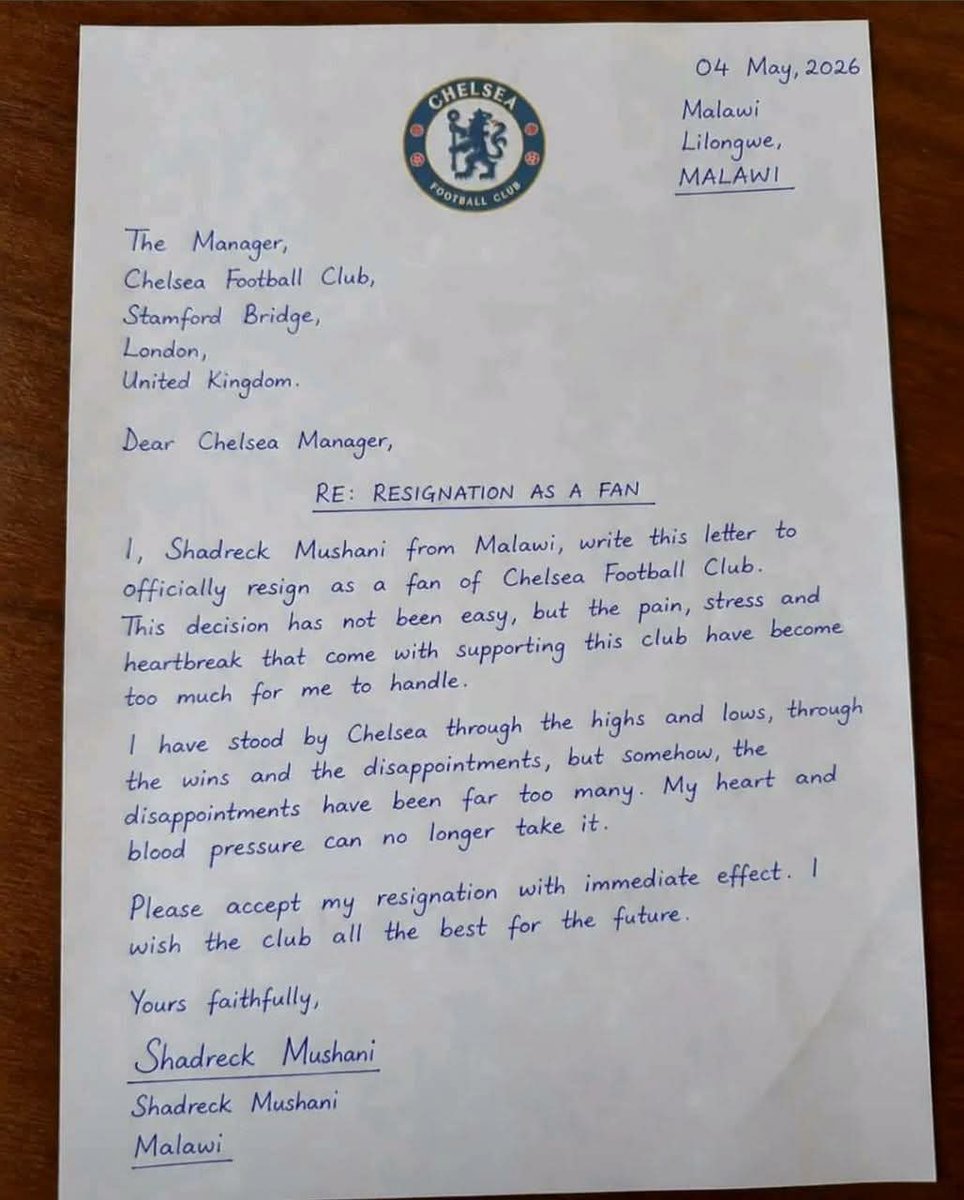 04 May, 2026
Malawi
Lilongwe,
MALAWI
CHELSEA
FOOTBALL CLUB
The Manager,
Chelsea Football Club,
Stamford Bridge,
London,
United Kingdom.
Dear Chelsea Manager,
RE: RESIGNATION AS A FAN
I, Shadreck Mushani from Malawi, write this letter to
officially resign as a fan of Chelsea Football Club.
This decision has not been easy, but the pain, stress and
heartbreak that come with supporting this club have become
too much for me to handle.
I have stood by Chelsea through the highs and lows, through
the wins and the disappointments, but somehow, the
disappointments have been far too many. My heart and
blood pressure can no longer take it.
Please accept my resignation with immediate effect. I
wish the club all the best for the future.
Yours faithfully,
Shadreck Mushani
Shadreck Mushani
Malawi